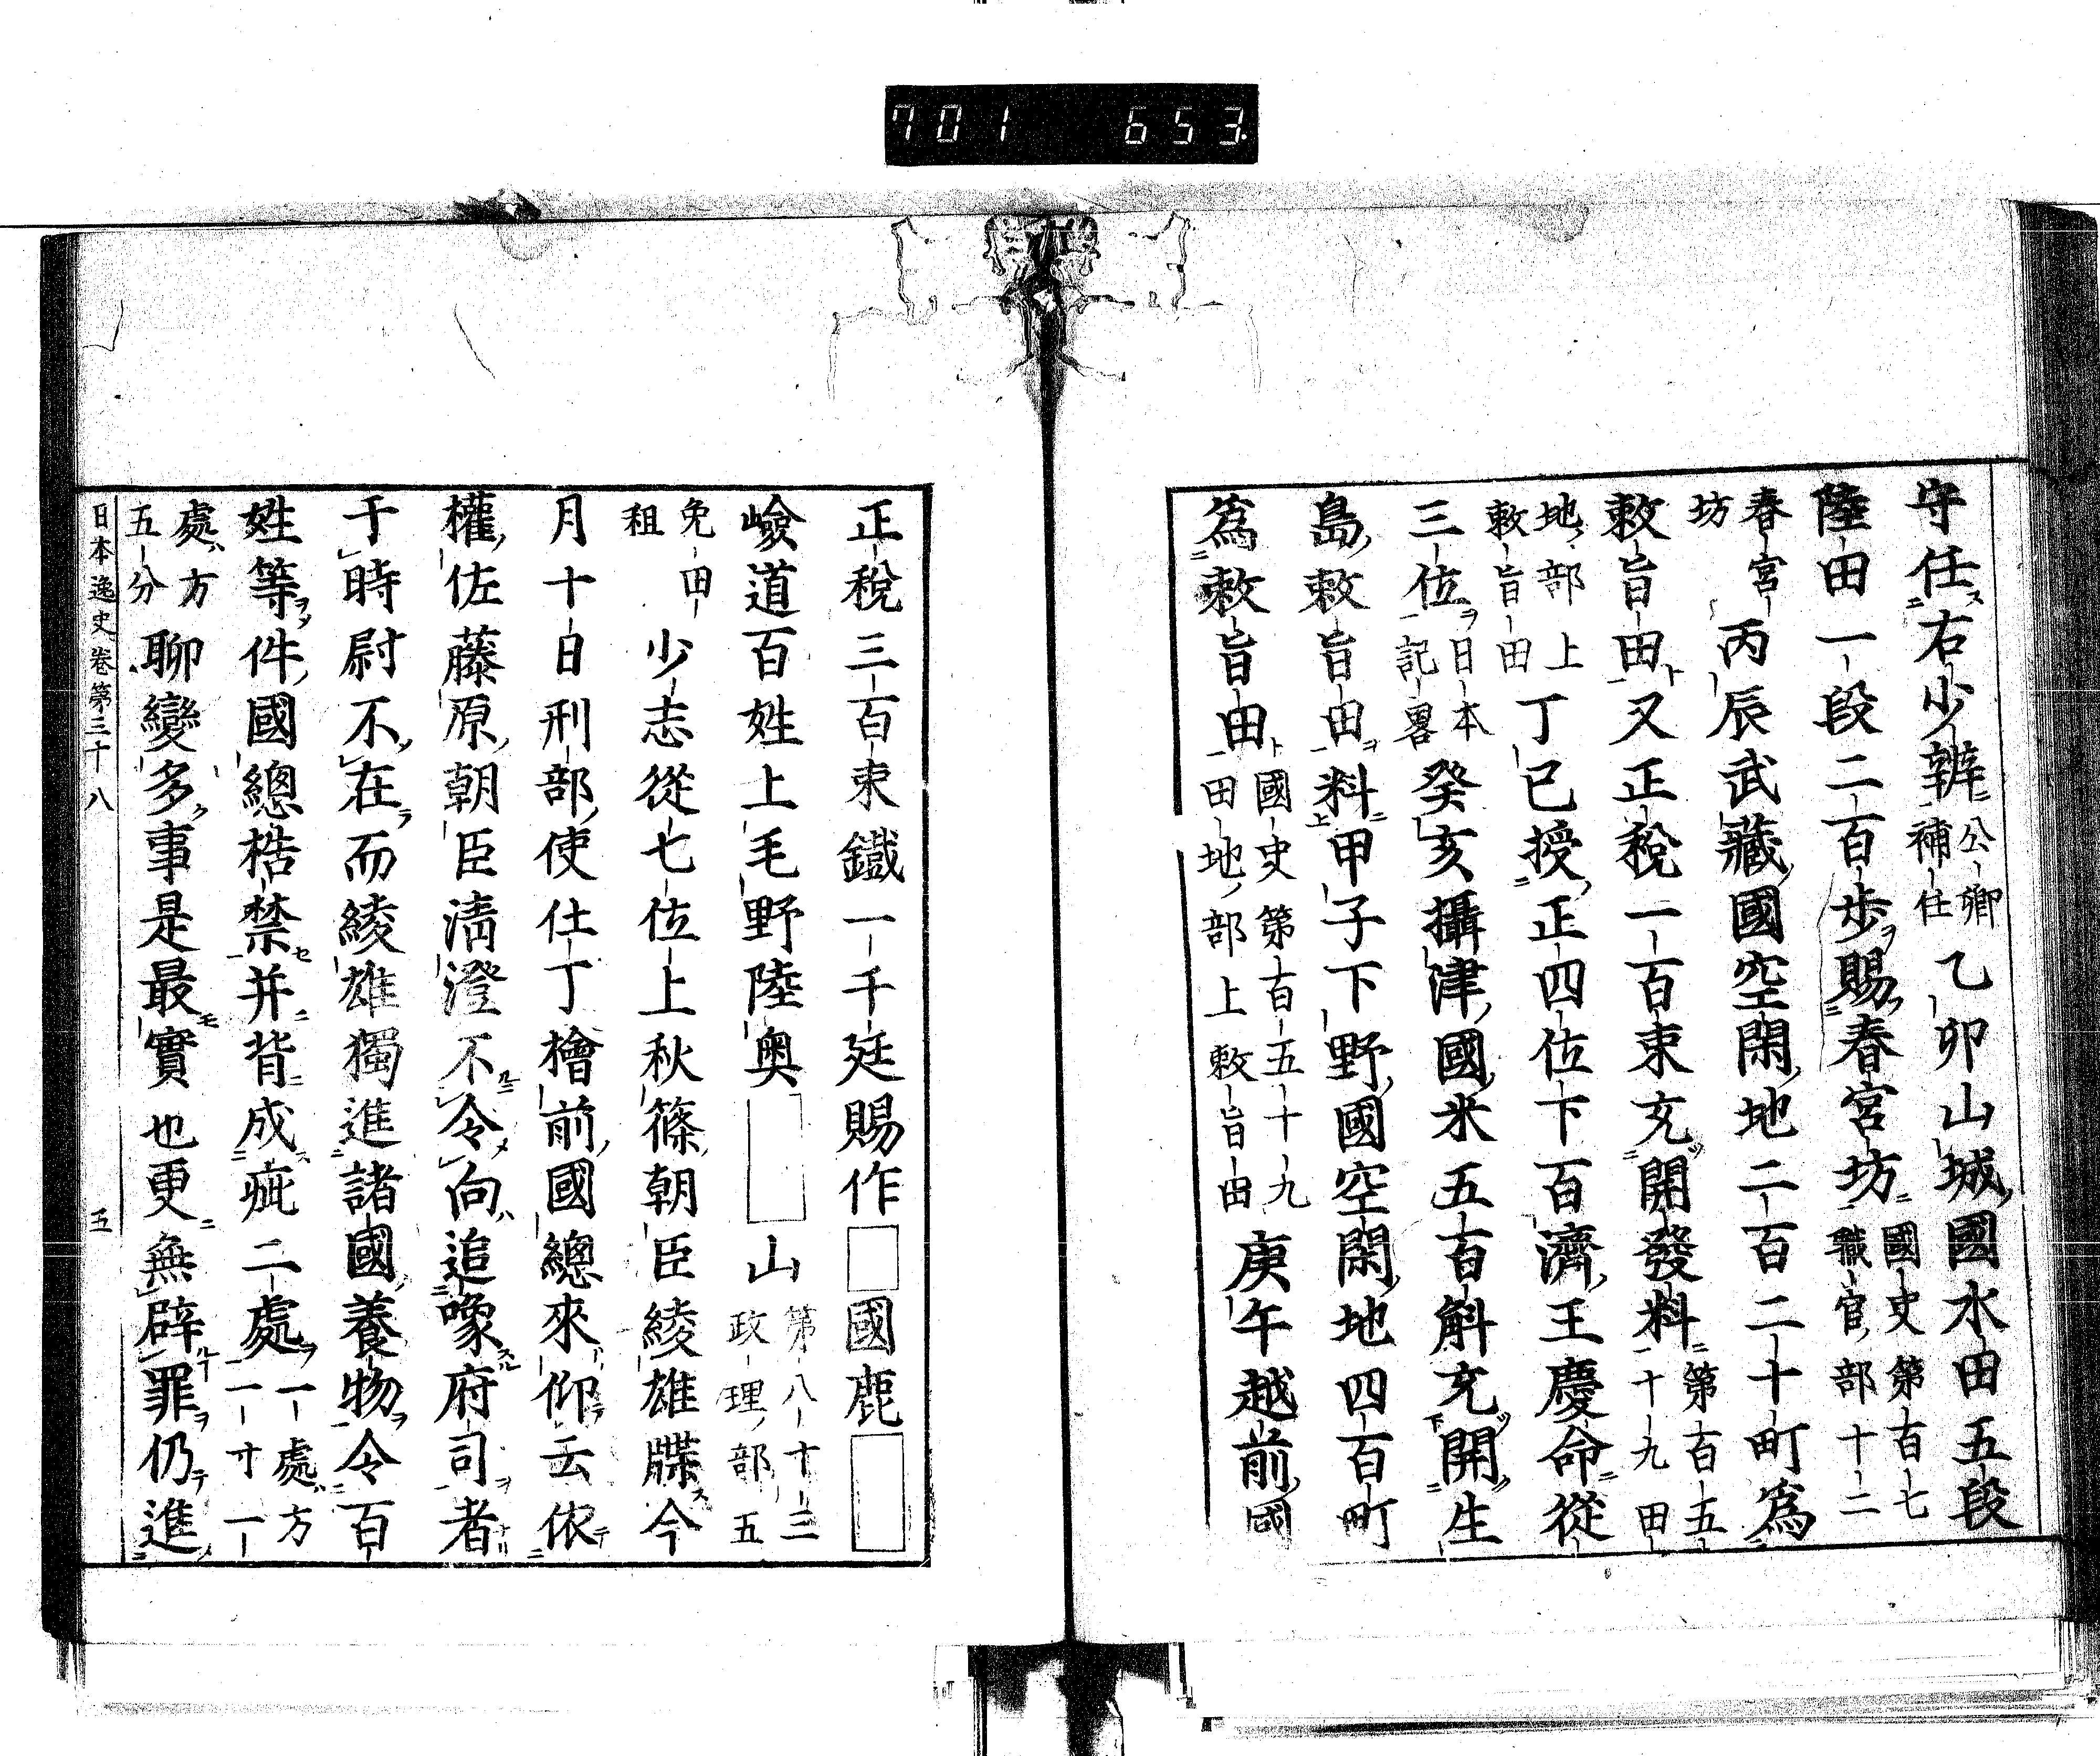 701 653
守任右少辨公卿補任乙卯山城國水田五段
陸田一段二百歩賜春宮坊國史第百七職官部十二
春宮坊丙辰武藏國空閑地二百二十町爲
敕旨田又正稅一百束充開發料第百五十九田
地部上敕旨田丁巳授正四位下百濟王慶命從
三位日本記畧癸亥攝津國米五百斛充開生
島敕旨田料甲子下野國空閑地四百町
爲敕旨田國史第百五十九田地部上敕旨田庚午越前國
正稅三百束鐵一千廷賜作□國鹿□
嶮道百姓上毛野陸奥□山第八十三政理部五
免田租少志從七位上秋篠朝臣綾雄牒今
月十日刑部使仕丁檜前國總來仰云依
權佐藤原朝臣淸澄不令向追喙府司者
于時尉不在而綾雄獨進諸國養物令百
姓等件國總梏禁并背成疵二處一處方一寸一
處方五分聊變多事是最實也更無辟罪仍進
日本逸史卷第三十八 五